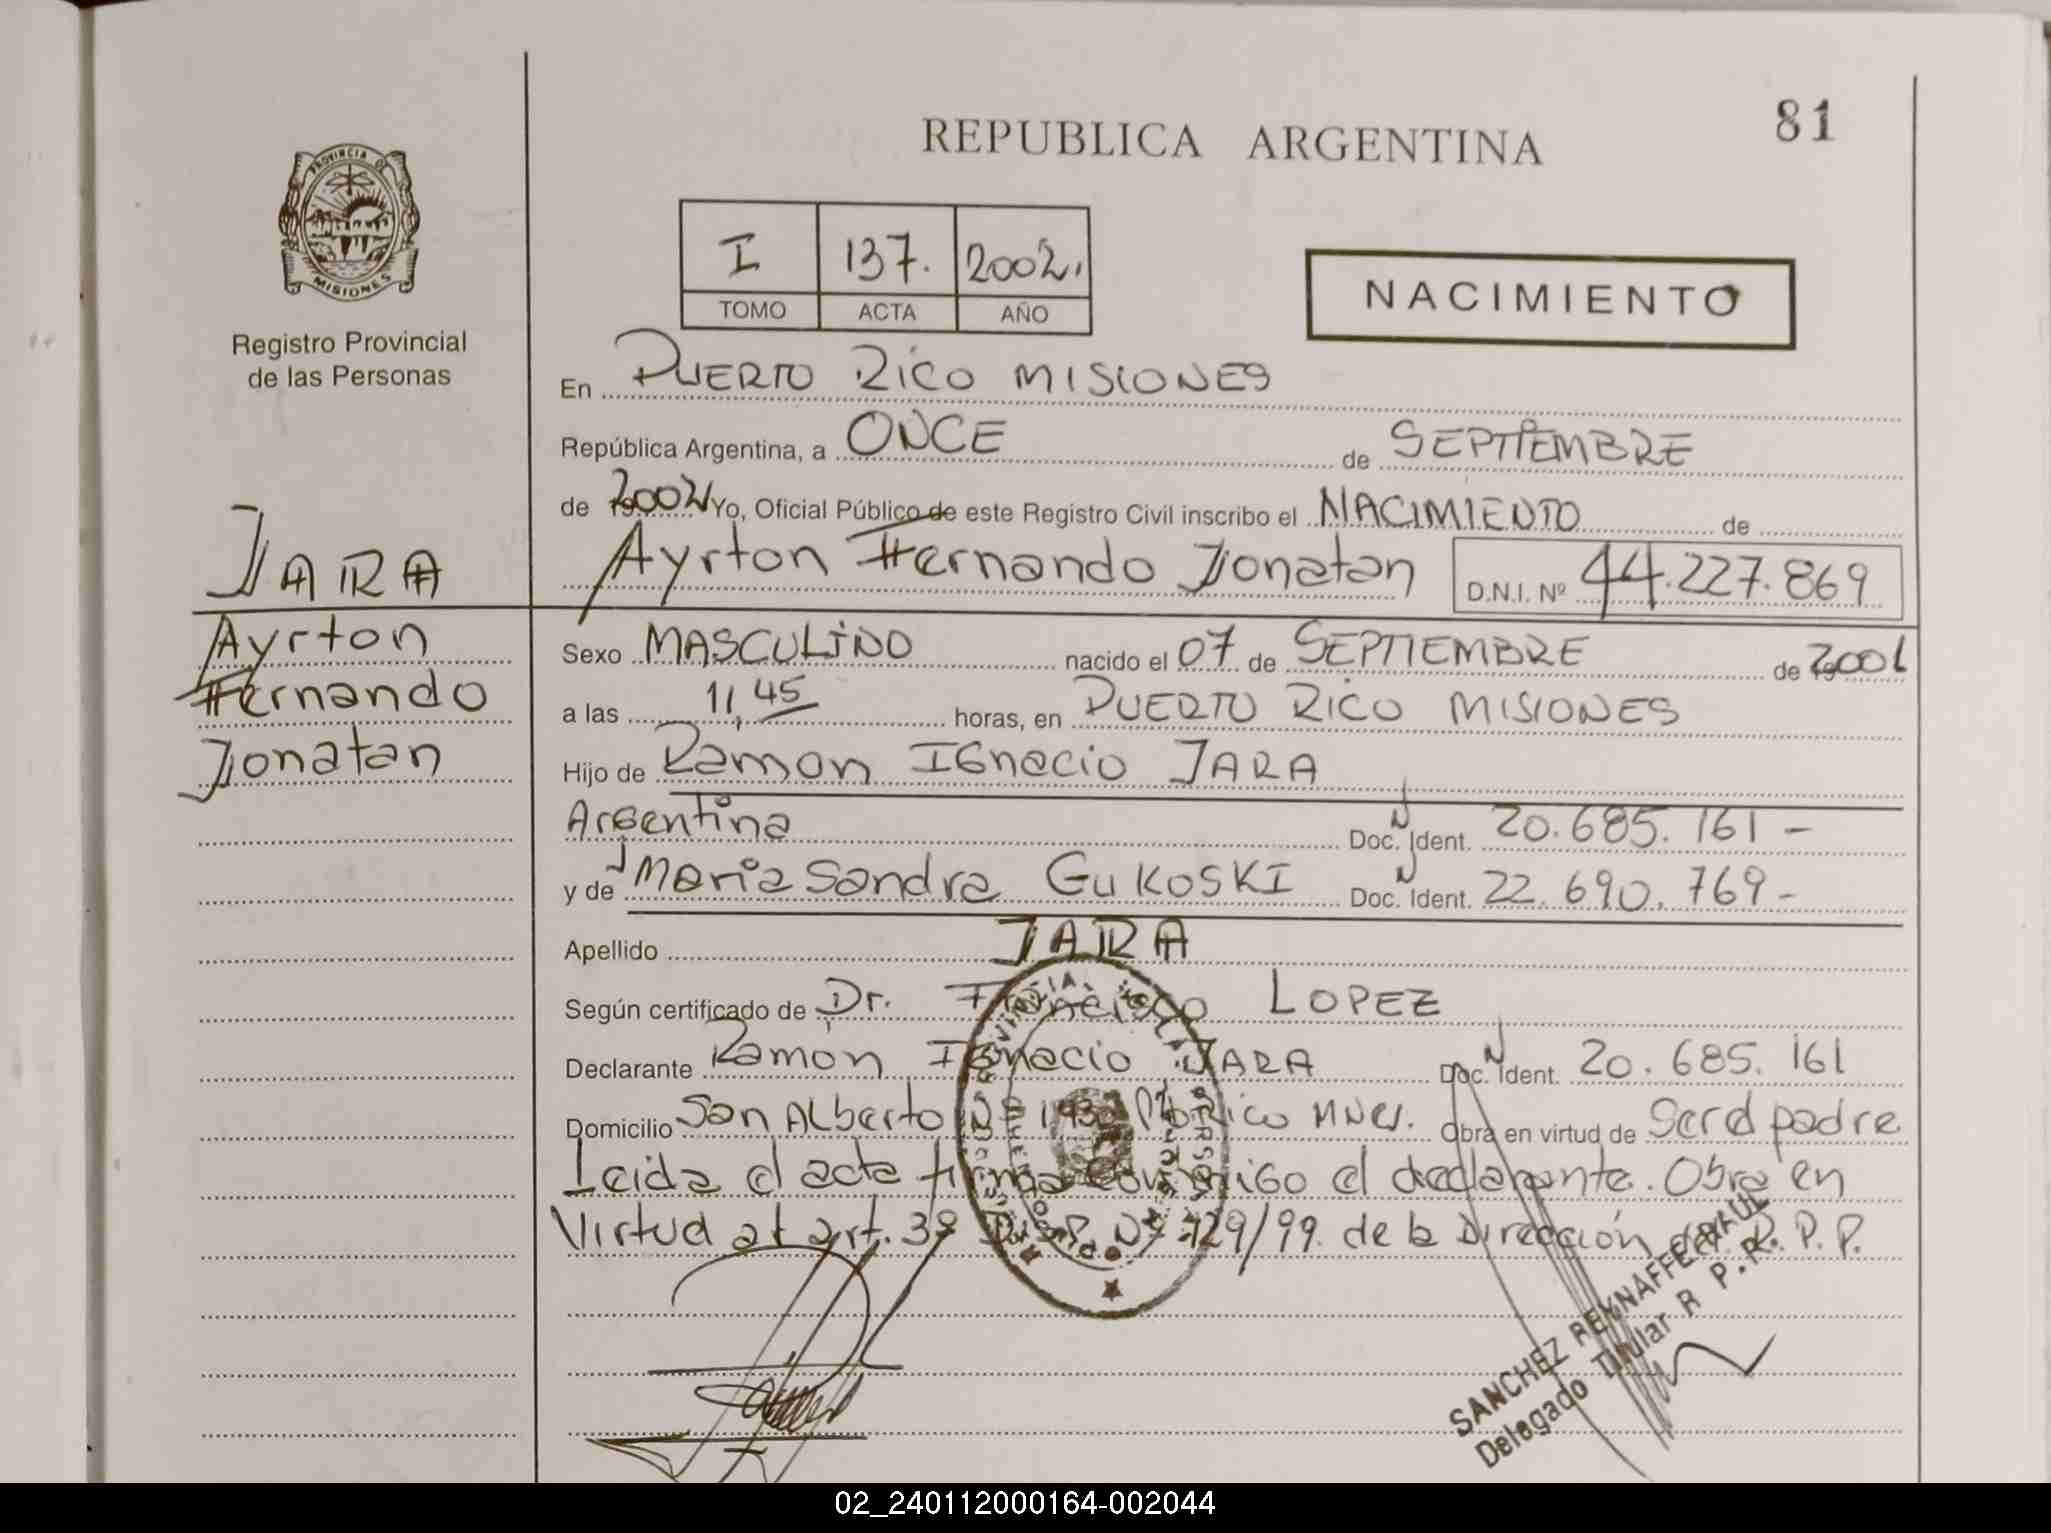 81
REPUBLICA ARGENTINA
PROVINCIA DE
MISIONES
Registro Provincial
de las Personas
I 137. 2002.
TOMO ACTA AÑO
NACIMIENTO
En PUERTO RICO MISIONES
República Argentina, a ONCE de SEPTIEMBRE
de 2002 Yo, Oficial Público de este Registro Civil inscribo el NACIMIENTO de
Ayrton Fernando Jonatan D.N.I. Nº 44.227.869
JARA
Ayrton
Fernando
Jonatan
Sexo MASCULINO nacido el 07 de SEPTIEMBRE de 2002
a las 11,45 horas, en PUERTO RICO MISIONES
Hijo de Ramon IGnacio JARA
Argentina Doc. Ident. 20.685.161-
y de Maria Sandra GUKOSKI Doc. Ident. 22.690.769-
Apellido JARA
Según certificado de Dr. Francisco LOPEZ
Declarante Ramon IGnacio JARA Doc. Ident. 20.685.161
Domicilio San ALberto Nº 193 Pto Rico Mnes. Obra en virtud de Ser el padre
Leida el acta firma conmigo el declarante. Obra en
Virtud al art. 3º Disp. Nº 129/99 de la Dirección del R.P.P.
SANCHEZ REYNAFFE RAUL
Delegado Titular R.P.P.
02_240112000164-002044